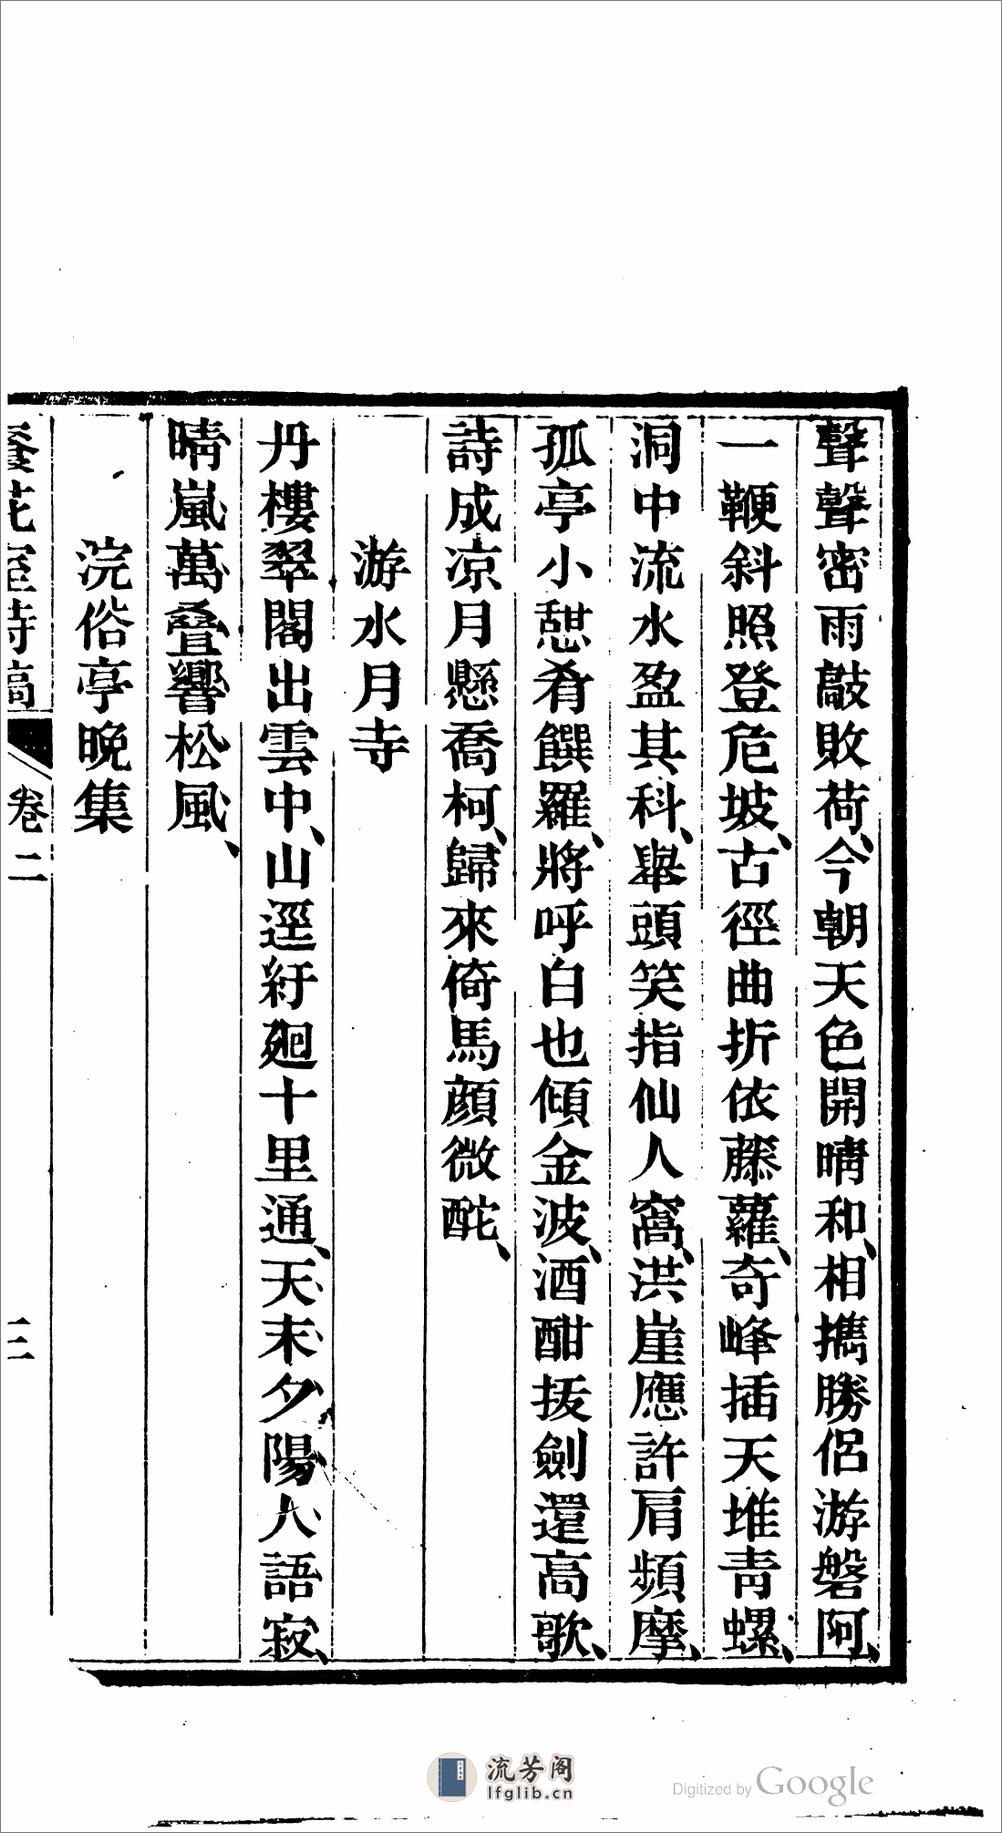 聲聲密雨敲敗荷、今朝天色開晴和、相攜勝侶游磐阿、
一鞭斜照登危坡、古徑曲折依藤蘿、奇峰插天堆青螺、
洞中流水盈其科、舉頭笑指仙人窩、洪崖應許肩頻摩、
孤亭小憩肴饌羅、將呼白也傾金波、酒酣拔劍還高歌、
詩成凉月懸喬柯、歸來倚馬顔微酡、
游水月寺
丹樓翠閣出雲中、山逕紆廻十里通、天末夕陽人語寂、
晴嵐萬叠響松風、
浣俗亭晚集
花室詩稿
卷二
三
流芳阁
lfglib.cn
Digitized by Google